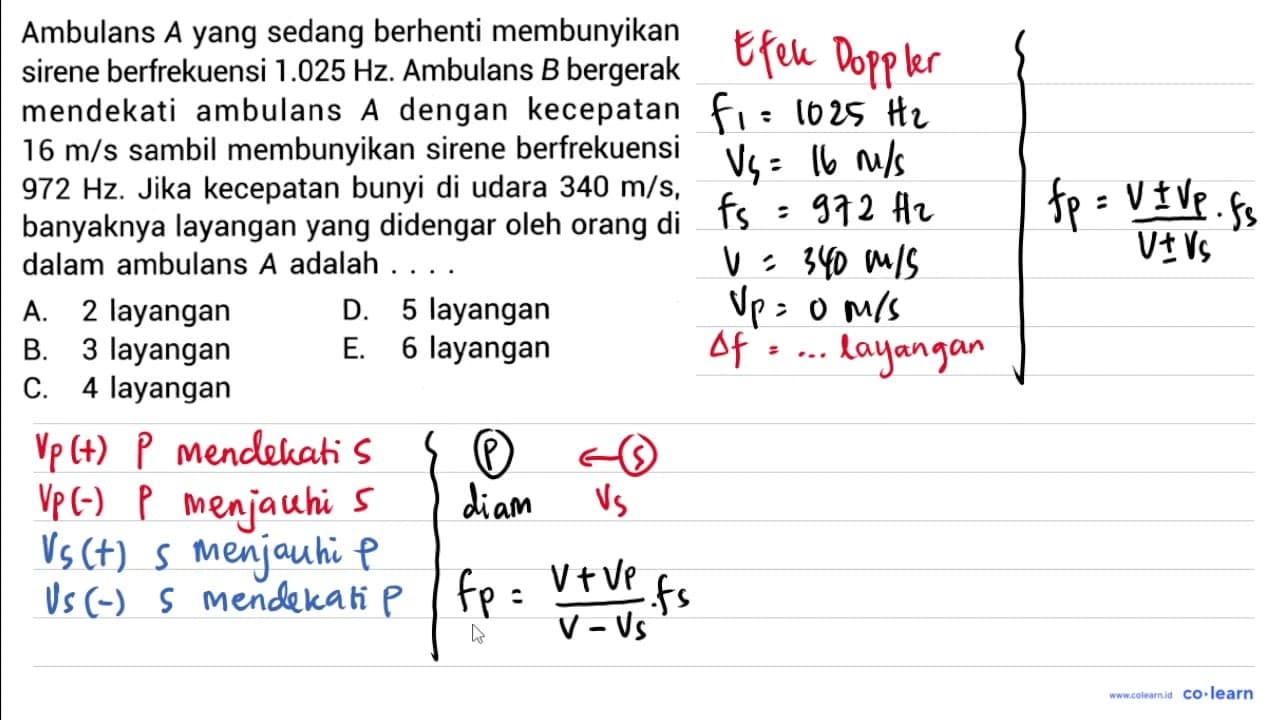 Ambulans A yang sedang berhenti membunyikan
sirene berfrekuensi 1.025 Hz. Ambulans B bergerak
mendekati ambulans A dengan kecepatan
16 m/s sambil membunyikan sirene berfrekuensi
972 Hz. Jika kecepatan bunyi di udara 340 m/s,
banyaknya layangan yang didengar oleh orang di
dalam ambulans A adalah . . . .
A. 2 layangan D. 5 layangan
B. 3 layangan E. 6 layangan
C. 4 layangan
Efek Doppler
f1 = 1025 Hz
Vs = 16 m/s
fs = 972 Hz
V = 340 m/s
Vp = 0 m/s
Δf = ... layangan
fp = V ± Vp / V ± Vs . fs
Vp (+) P mendekati S
Vp (-) P menjauhi S
Vs (+) S menjauhi P
Vs (-) S mendekati P
P ← S
diam Vs
fp = V + Vp / V - Vs . fs
www.colearn.id co·learn